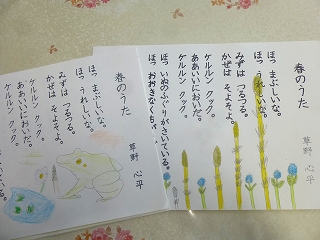 春のうた
草野 心平
ほっ まぶしいな。
ほっ うれしいな。
みずは つるつる。
かぜは そよそよ。
ケルルン クック。
ああいいにおいだ。
ケルルン クック。
ほっ いぬのふぐりがさいている。
ほっ おおきなくも
春のうた
草野 心平
ほっ まぶしいな。
ほっ うれしいな。
みずは つるつる。
かぜは そよそよ。
ケルルン クック。
ああいいにおいだ。
ケルルン クック。